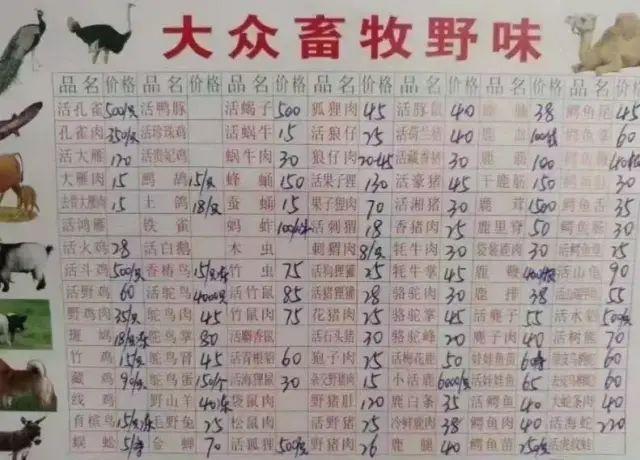 大众畜牧野味
品名 价格 品名 价格 品名 价格 品名 价格 品名 价格 品名 价格 品名 价格
活孔雀 500/只 活鸭豚 活蝎子 500 狐狸肉 45 活豚鼠 40 38 鳄鱼尾 45
孔雀肉 350/只 活珍珠鸡 活蜗牛 15 活狼仔 25 活荷兰猪 40 鹿血 鳄鱼掌 60
活大雁 120 活贵妃鸡 蜗牛肉 30 狼仔肉 活藏香猪 30 鹿 100
大雁肉 15 鹧鸪 15/只 蜂蛹 150 活果子狸 130 活豪猪 45 干鹿筋 150 30
去骨大雁肉 15 土鸽 18/只 蚕蛹 15 果子狸肉 70 活湘猪 30 鹿茸 1500 鳄鱼舌 35
活鸿雁 铁雀 蚂蚱 活刺猬 18 香猪肉 25 鹿里脊 50 鳄鱼肠 30
活火鸡 28 活白鹅 木虫 刺猬肉 8/只 牦牛肉 30 袋装鹿肉 30 活鳄鱼龟 25
活斗鸡 500/只 香椿鸟 竹虫 75 活狗狸獾 25 牦牛掌 45 鹿鞭 活山龟 90
活野鸡 60 活鸵鸟 活竹鼠 85 活猪狸獾 28 骆驼肉 30 鹿排 38 55
野鸡肉 35/只 鸵鸟肉 45 竹鼠肉 75 花猪肉 25 骆驼掌 45 活麂子 55 活水蛤
斑鸠 鸵鸟掌 80 活麝香鼠 活石头猪 30 骆驼峰 20 麂子肉 40 活树熊 70
竹鸡 15/只 鸵鸟胃 45 活青根貂 60 狍子肉 25 活梅花鹿 50 娃娃鱼苗 60
藏鸡 鸵鸟蛋 活海狸鼠 30 杂交野猪肉 15 小活鹿 活娃娃鱼 65 60
线鸡 野山羊 袋鼠肉 野猪肚 120 鹿白条 35 活鳄鱼 40 大蛇条肉 40
育槟鸟 毛野兔 25 松鼠肉 活野猪 25 冷鲜鹿肉 38 鳄鱼肉 40 活海蛇 220
蜈蚣 金蝉 70 活狐狸 野猪肉 26 鹿腿 40 鳄鱼苗